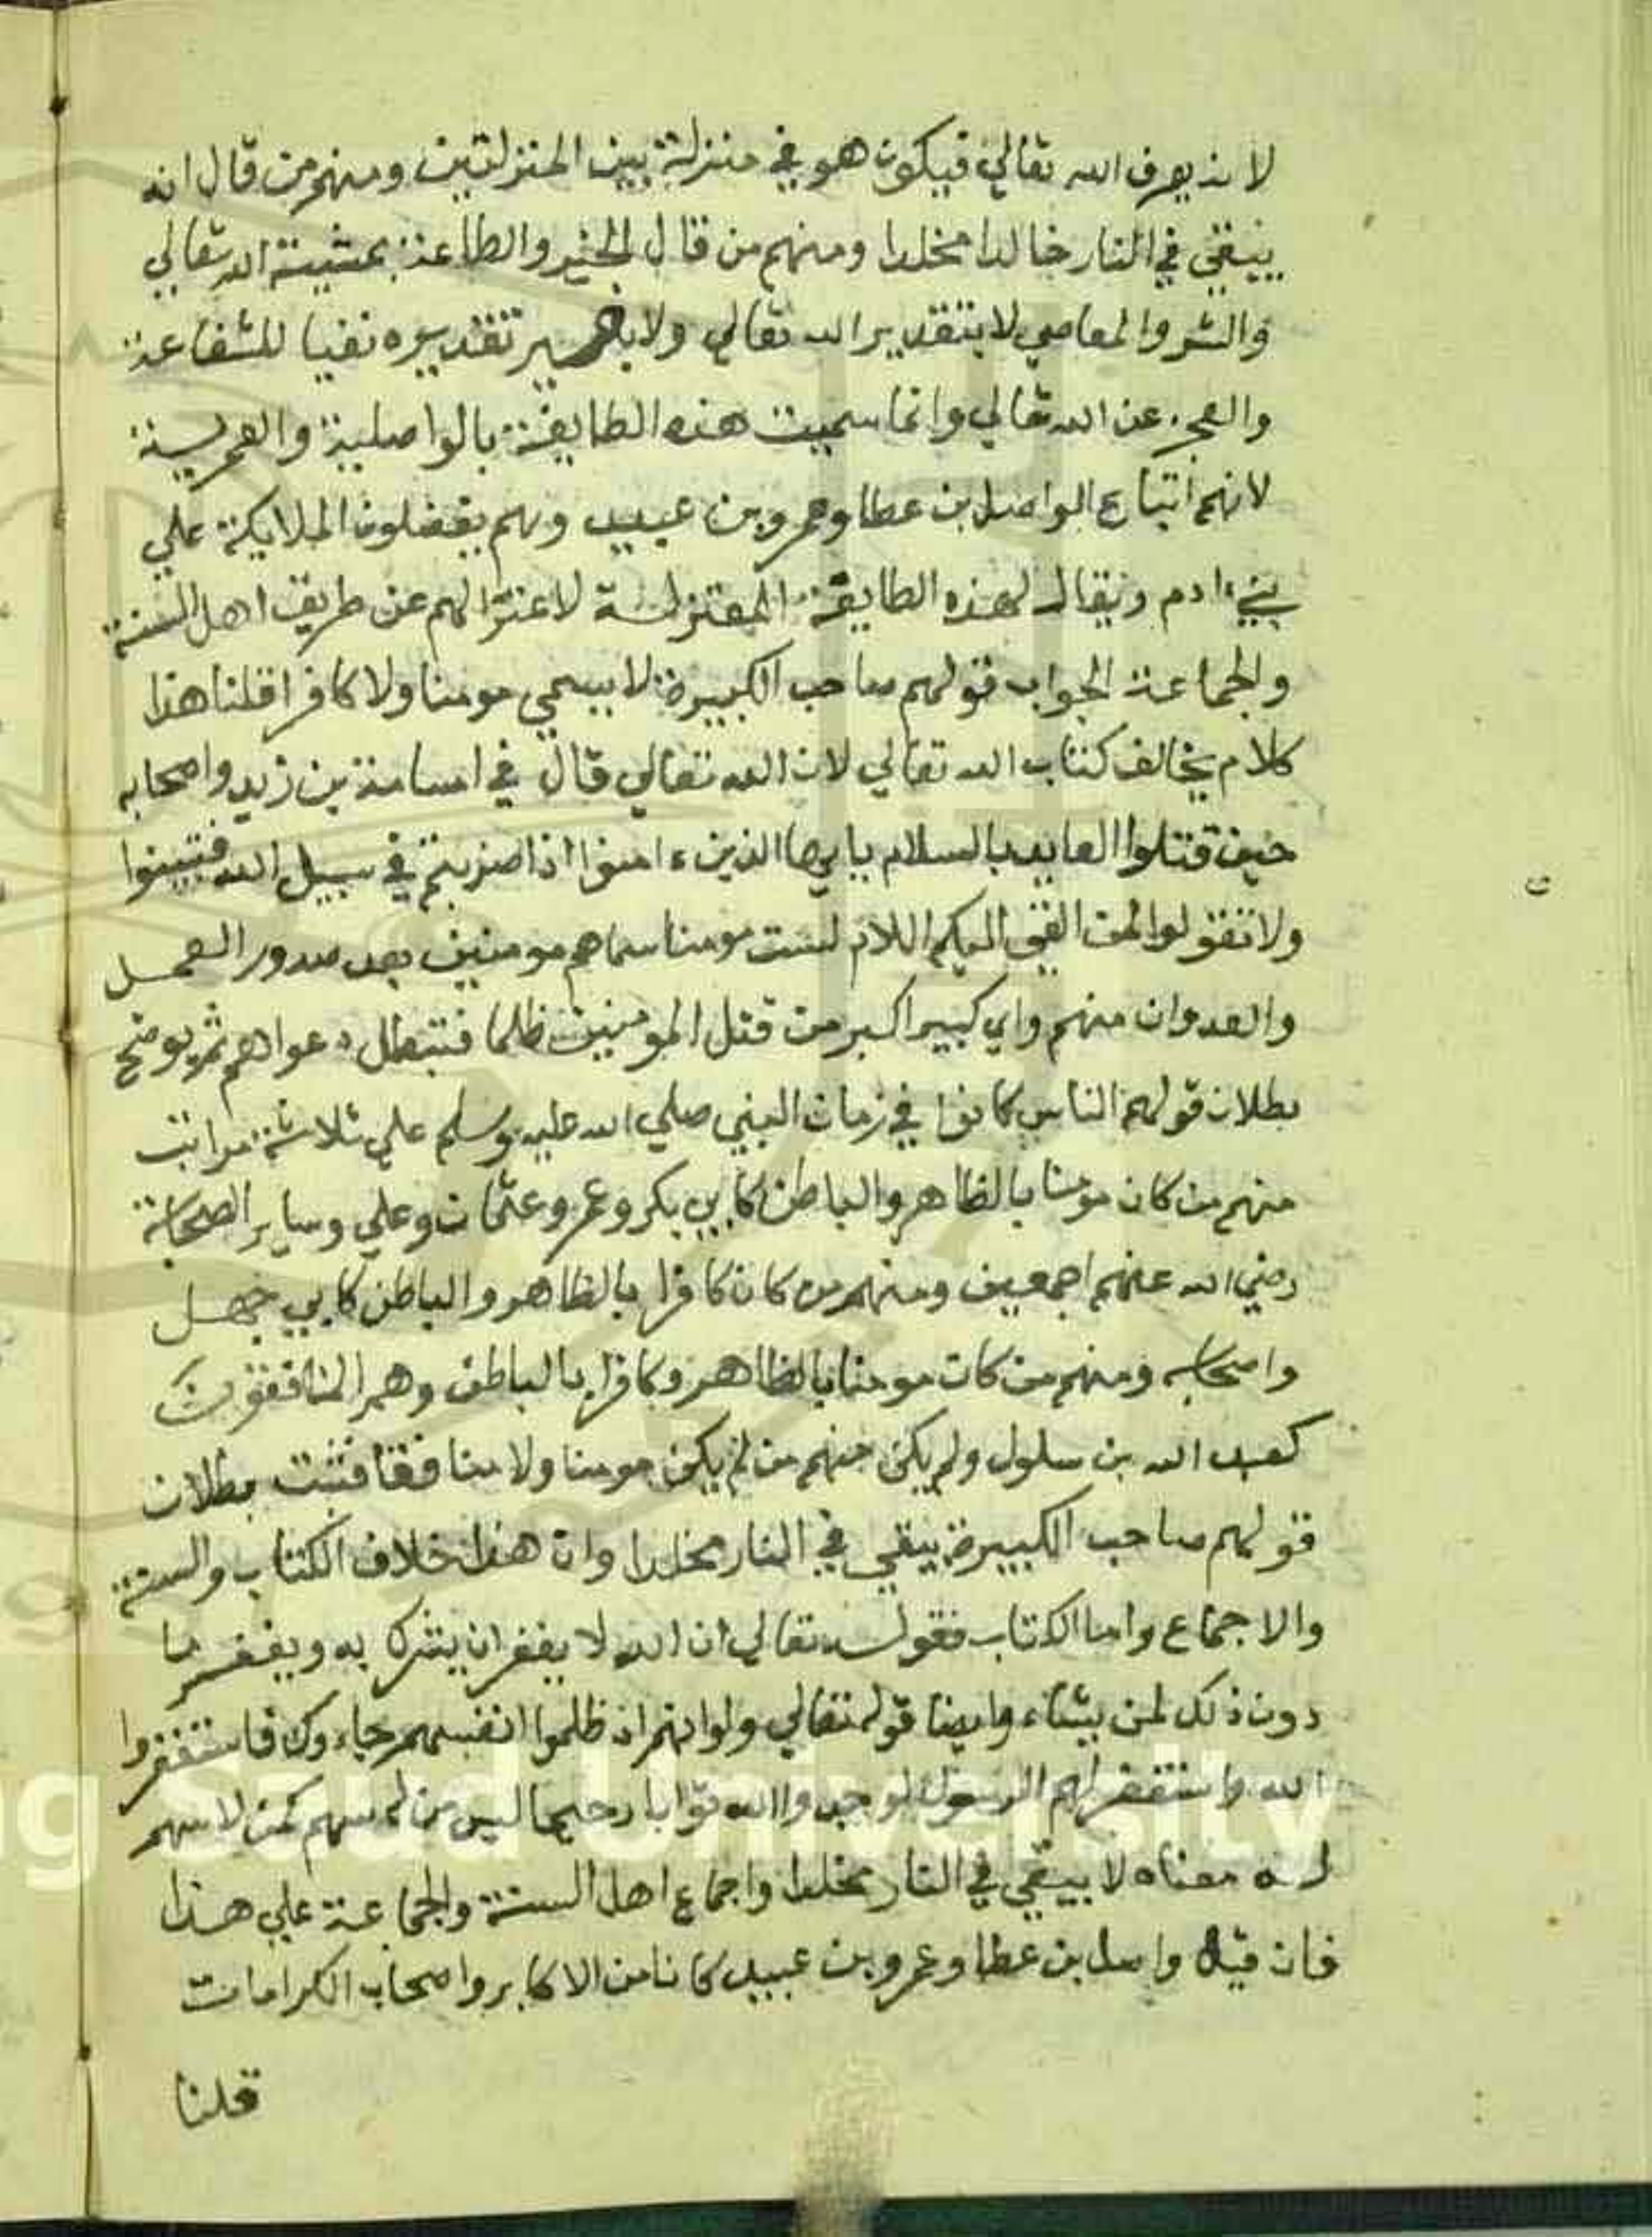 لانه يعرف الله تعالي فيكون هو في منزلة بين المنزلتين ومنهم من قال انه
يبقي في النار خالدا مخلدا ومنهم من قال الخير والطاعة بمشية الله تعالي
والشر والمعاصي لا بتقدير الله تعالي ولا تقديره نفيا للشفاعة
والعجز عن الله تعالي وانما سميت هذه الطايفة بالواصلية والعمرية
لانهم اتباع الواصل بن عطا وعمرو بن عبيد وهم يفضلون الملايكة علي
بنيء ادم ويقال لهذه الطايفة المعتزلة لاعتزالهم عن طريق اهل السنة
والجماعة الجواب قولهم صاحب الكبيرة لا يسمي مومنا ولا كافرا قلنا هذا
كلام يخالف كتاب الله تعالي لان الله تعالي قال في اسامة بن زيد واصحابه
حين قتلوا العابد بالسلام يا يها الذين ء امنوا اذا ضربتم في سبيل الله فتبينوا
ولا تقولوا لمن القي اليكم اللام لست مومنا سماهم مومنين بعد صدور العمل
والعدوان منهم واي كبيرا كبر من قتل المومنين ظلما فتبطل دعواهم ثم يوضح
بطلان قولهم الناس كانوا في زمان النبي صلي الله عليه وسلم علي ثلاثة مراتب
منهم من كان مومنا بالظاهر والباطن كابي بكر وعمر وعثمان وعلي وساير الصحابة
رضي الله عنهم اجمعين ومنهم من كان كافرا بالظاهر والباطن كابي جهل
واصحابه ومنهم من كان مومنا بالظاهر وكافرا بالباطن وهم المنافقون
كعبد الله بن سلول ولم يكن منهم من لم يكن مومنا ولا منافقا فثبت بطلان
قولهم صاحب الكبيرة يبقي في النار مخلدا وان هذا خلاف الكتاب والسنة
والاجماع واما الكتاب فقوله تعالي ان الله لا يغفر ان يشرك به ويغفر ما
دون ذلك لمن يشاء وايضا قوله تعالي ولو انهم اذ ظلموا انفسهم جاءوك فاستغفروا
الله واستغفر لهم الرسول لوجدوا الله توابا رحيما ليس من له سهم كمن لا سهم
له معناه لا يبقي في النار مخلدا واجماع اهل السنة والجماعة علي هذا
فان قيل واصل بن عطا وعمرو بن عبيد كانا من الاكابر واصحاب الكرامات
قلنا